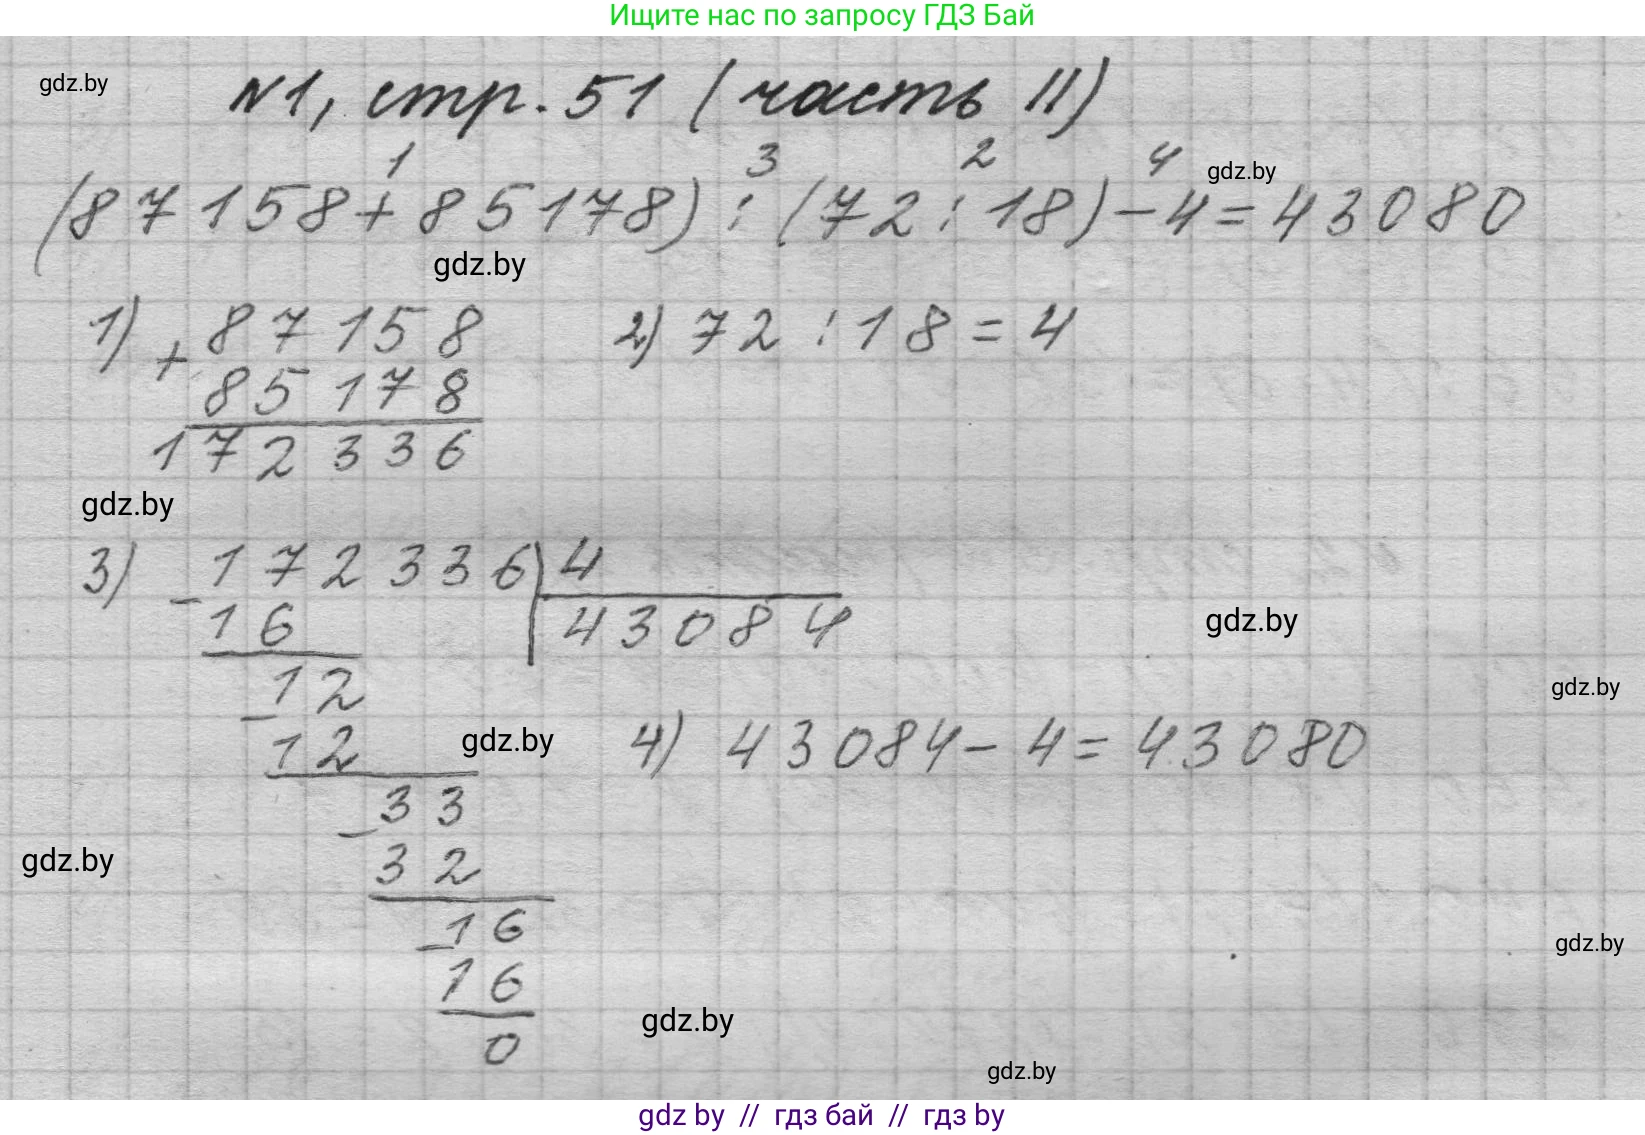 Ищите нас по запросу ГДЗ Бай
gdz.by
№1, стр. 51 (часть II)
1 3 2 4
(87158+85178):(72:18)-4=43080
gdz.by
gdz.by
1) + 87158
85178
172336
2) 72:18=4
gdz.by
3) - 172336 | 4
43084
16
gdz.by
gdz.by
- 12
12
gdz.by
4) 43084-4=43080
- 33
32
gdz.by
- 16
16
0
gdz.by
gdz.by
gdz.by
gdz by // гдз бай // гдз by